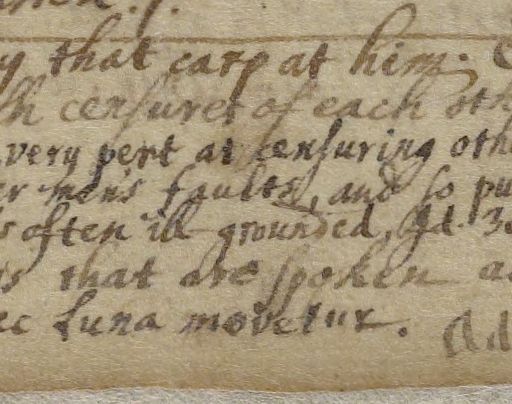 y that carp at him.
censures of each oth
very pert at censuring oth
er men's faults, and so pu
s often ill grounded, Id. 3
s that are spoken a
ec Luna movetur. Ad